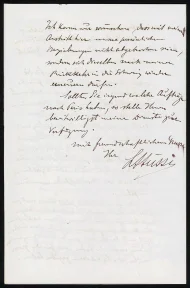 Ich kann nur wünschen, dass mit meiner
unsere persönlichen
Beziehungen nicht abgebrochen seien,
sondern sich dieselben nach meiner
Rückkehr in die Schweiz wieder
erneuern dürfen.
Sollten Sie irgend welche Aufträge
nach Paris haben, so stelle Ihnen
bereitwilligst meine Dienste zur
Verfügung.
Mit freundschaftlichem Gruss
Ihr